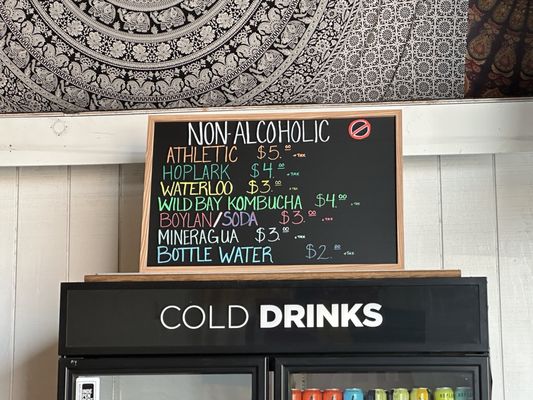 NON-ALCOHOLIC
ATHLETIC $5.00 +TAX
HOPLARK $4.00 +TAX
WATERLOO $3.00 +TAX
WILD BAY KOMBUCHA $4.00 +TAX
BOYLAN/SODA $3.00 +TAX
MINERAGUA $3.00 +TAX
BOTTLE WATER $2.00 +TAX
COLD DRINKS